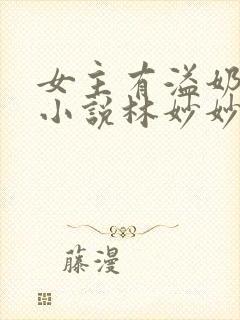 女主有溢奶
小说林妙妙
藤漫